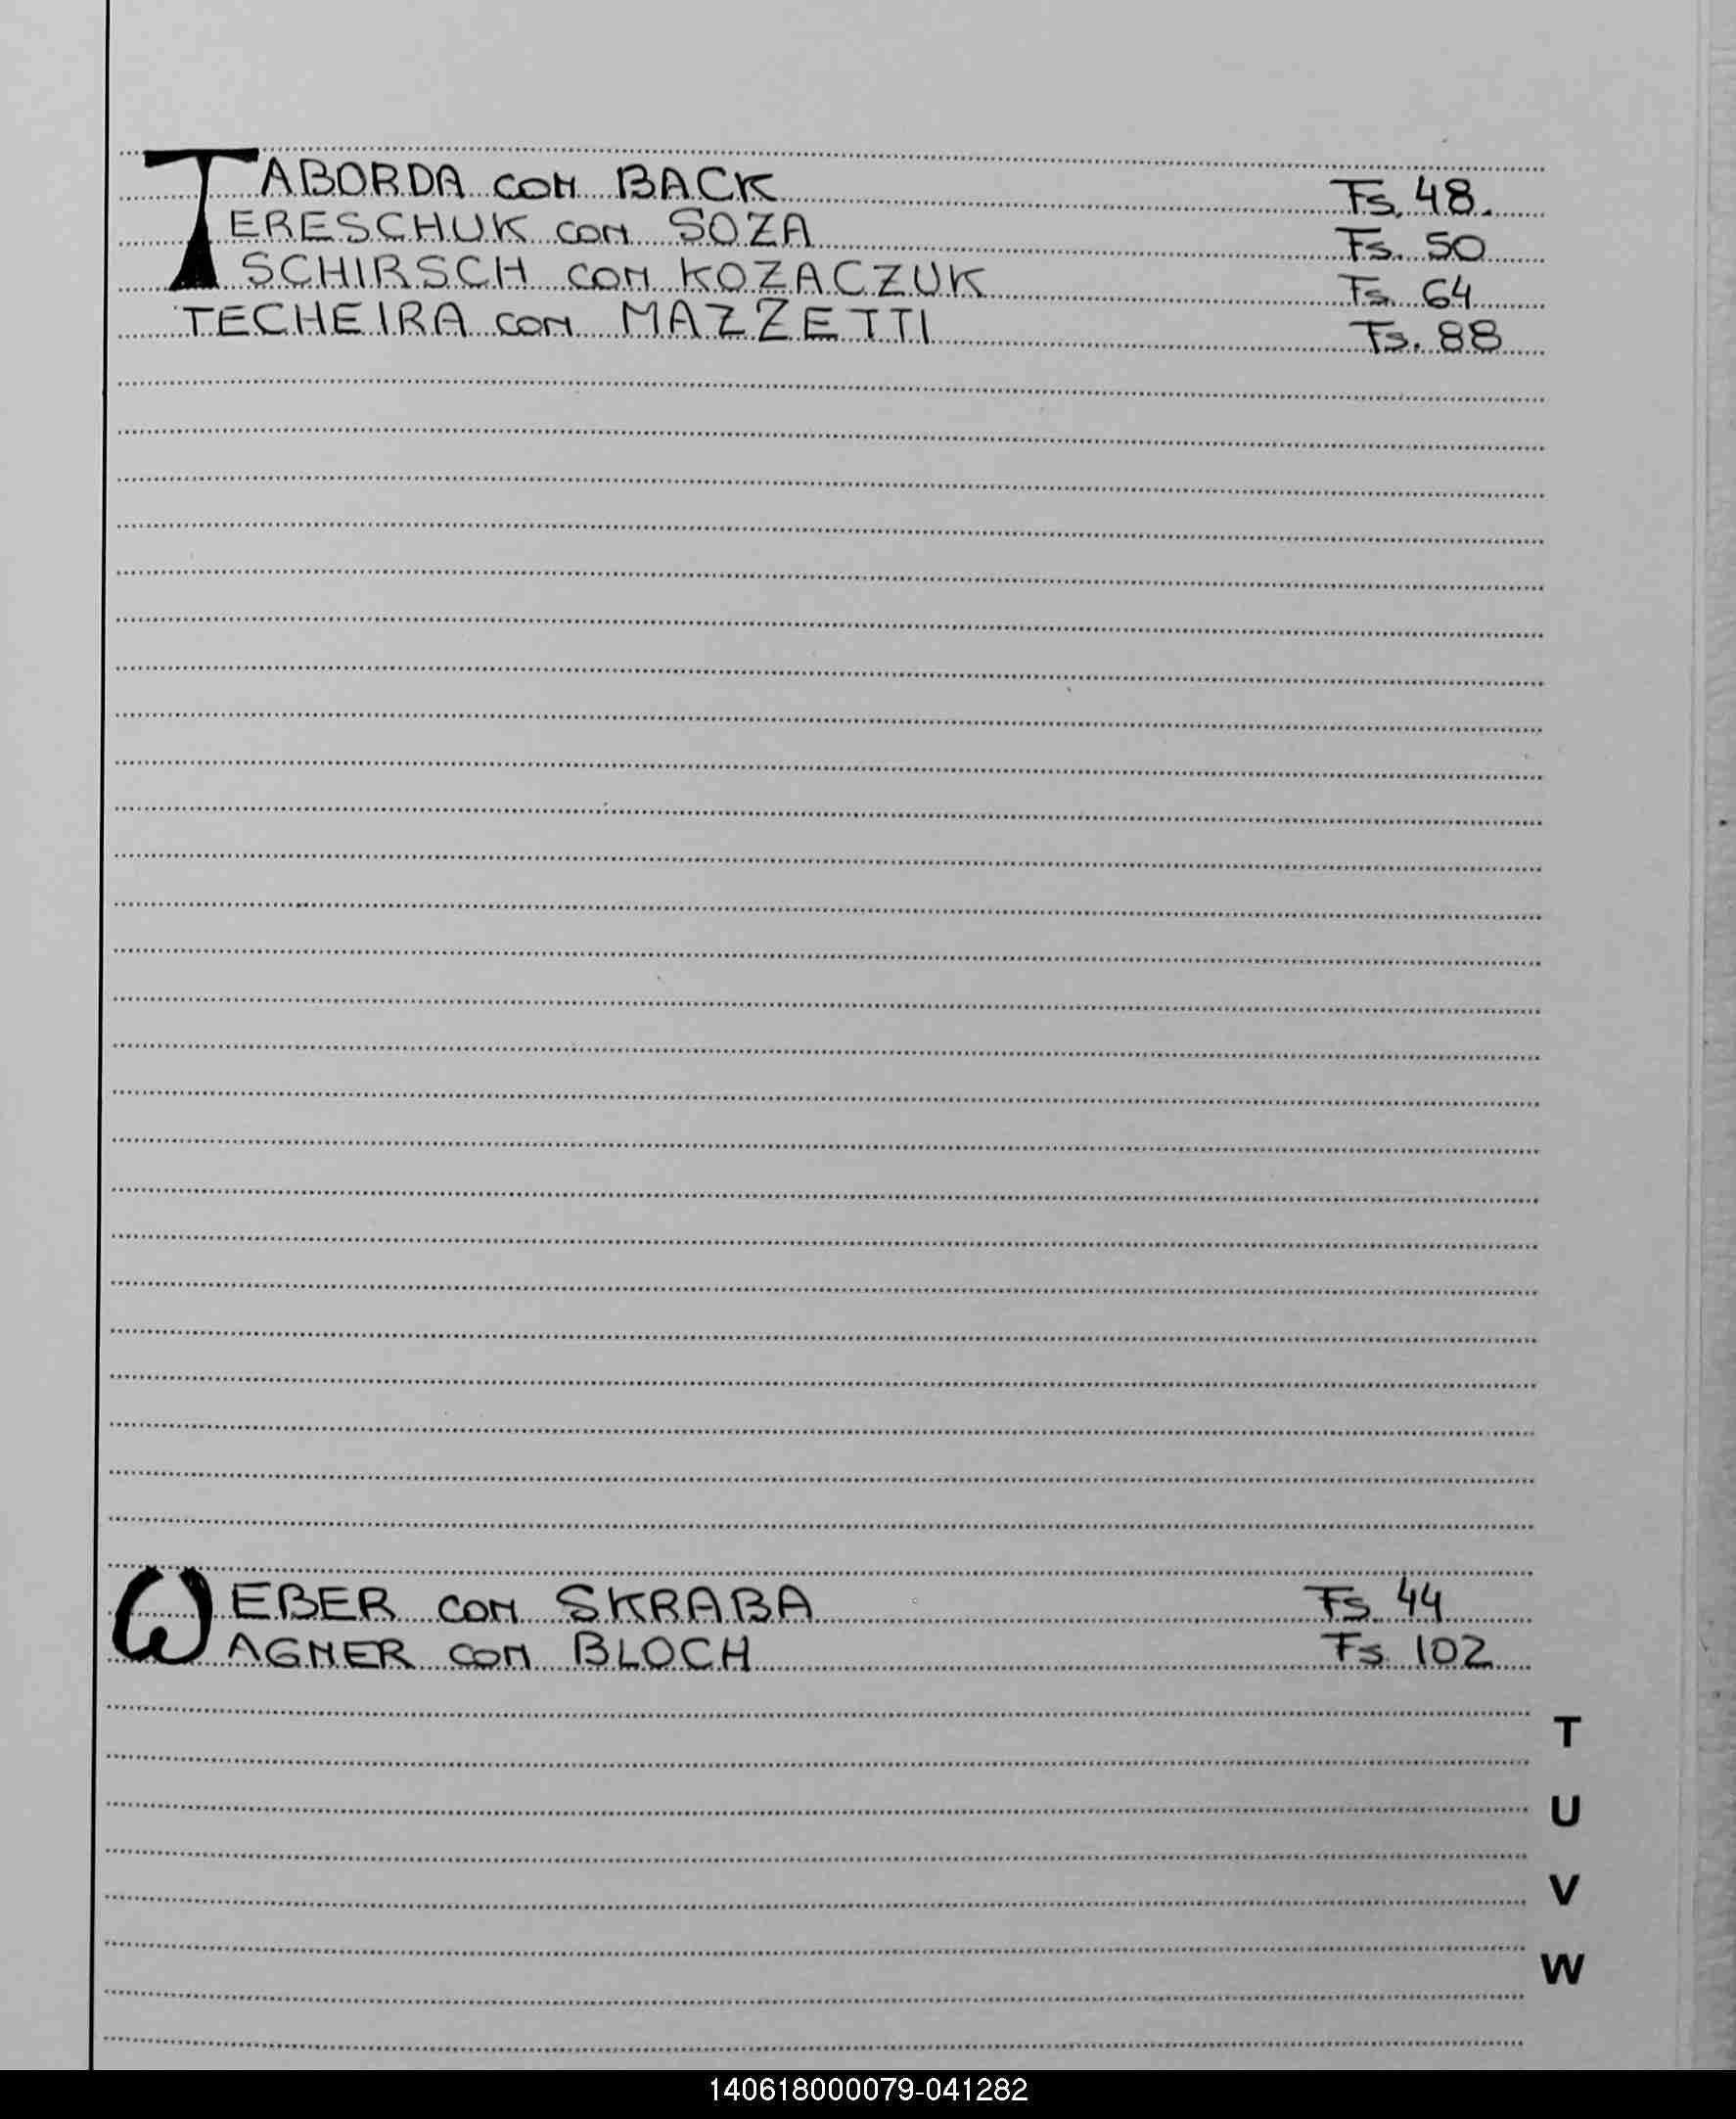 TABORDA con BACK Fs. 48.
TERESCHUK con SOZA Fs. 50
TSCHIRSCH con KOZACZUK Fs. 64
TECHEIRA con MAZZETTI Fs. 88
WEBER con SKRABA Fs. 44
WAGNER con BLOCH Fs. 102
T
U
V
W
140618000079-041282